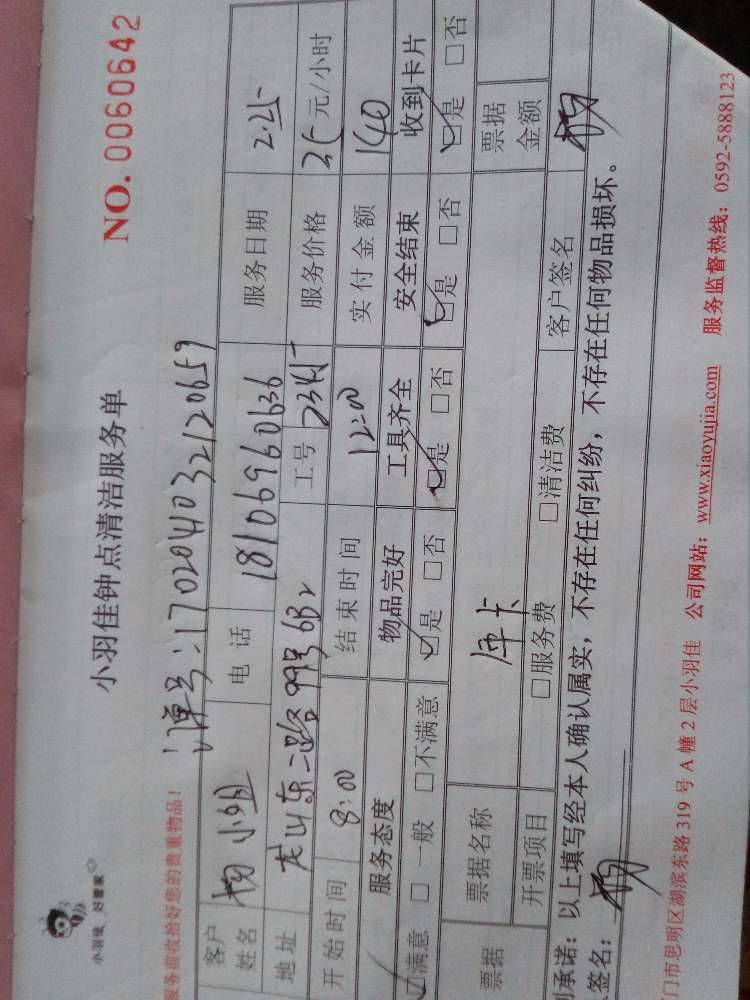 小羽佳 好管家
小羽佳钟点清洁服务单
NO. 0060642
服务前收拾好您的贵重物品！
订单号：1702041032120659
客户姓名 杨小姐 电话 18106960636 服务日期 2.25
地址 龙山东二路99号6B2 工号 服务价格 35元/小时
开始时间 8:00 结束时间 12:00 实付金额 140
服务态度 物品完好 工具齐全 安全结束 收到卡片
☑满意 □一般 □不满意 ☑是 □否 ☑是 □否 ☑是 □否 ☑是 □否
票据 票据名称 年卡 票据金额
开票项目 □服务费 □清洁费
承诺：以上填写经本人确认属实，不存在任何纠纷，不存在任何物品损坏。
签名：杨 客户签名 杨
门市思明区湖滨东路 319 号 A 幢 2 层小羽佳 公司网站：www.xiaoyujia.com 服务监督热线：0592-5888123